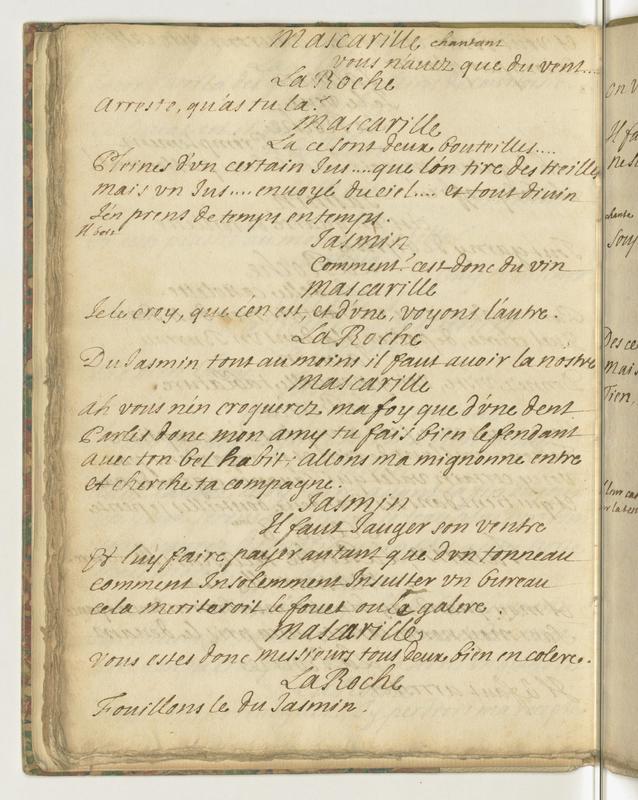 Mascarille chantant
vous n'auez que du vent....
La Roche
Arreste, qu'as tu la?
Mascarille
La ce sont deux bouteilles....
Pleines d'vn certain Jus....que lón tire des treilles
mais vn Jus.... enuoyé du ciel.... et tout diuin
J'én prens de temps en temps.
Il boit
Jasmin
Comment? cést donc du vin
Mascarille
Je le croy, que cén est, et d'vne, voyons láutre.
La Roche
Du Jasmin tout au moins il faut auoir la nostre
Mascarille
ah vous nén croquerez ma foy que d'vne dent
Parles donc mon amy tu fais bien le fendant
auec ton bel habit; allons ma mignonne entre
et cherche ta compagne.
Jasmin
Il faut Jauger son ventre
Et luy faire payer autant que d'vn tonneau
comment Insolemment Insulter vn bureau
cela meriteroit le fouet ou la galere.
Mascarille
vous estes donc messieurs tous deux bien en colere.
La Roche
Fouillons le du Jasmin.
on v
Il fa
ne s
chante
Souf
Des ce
mais
Tien,